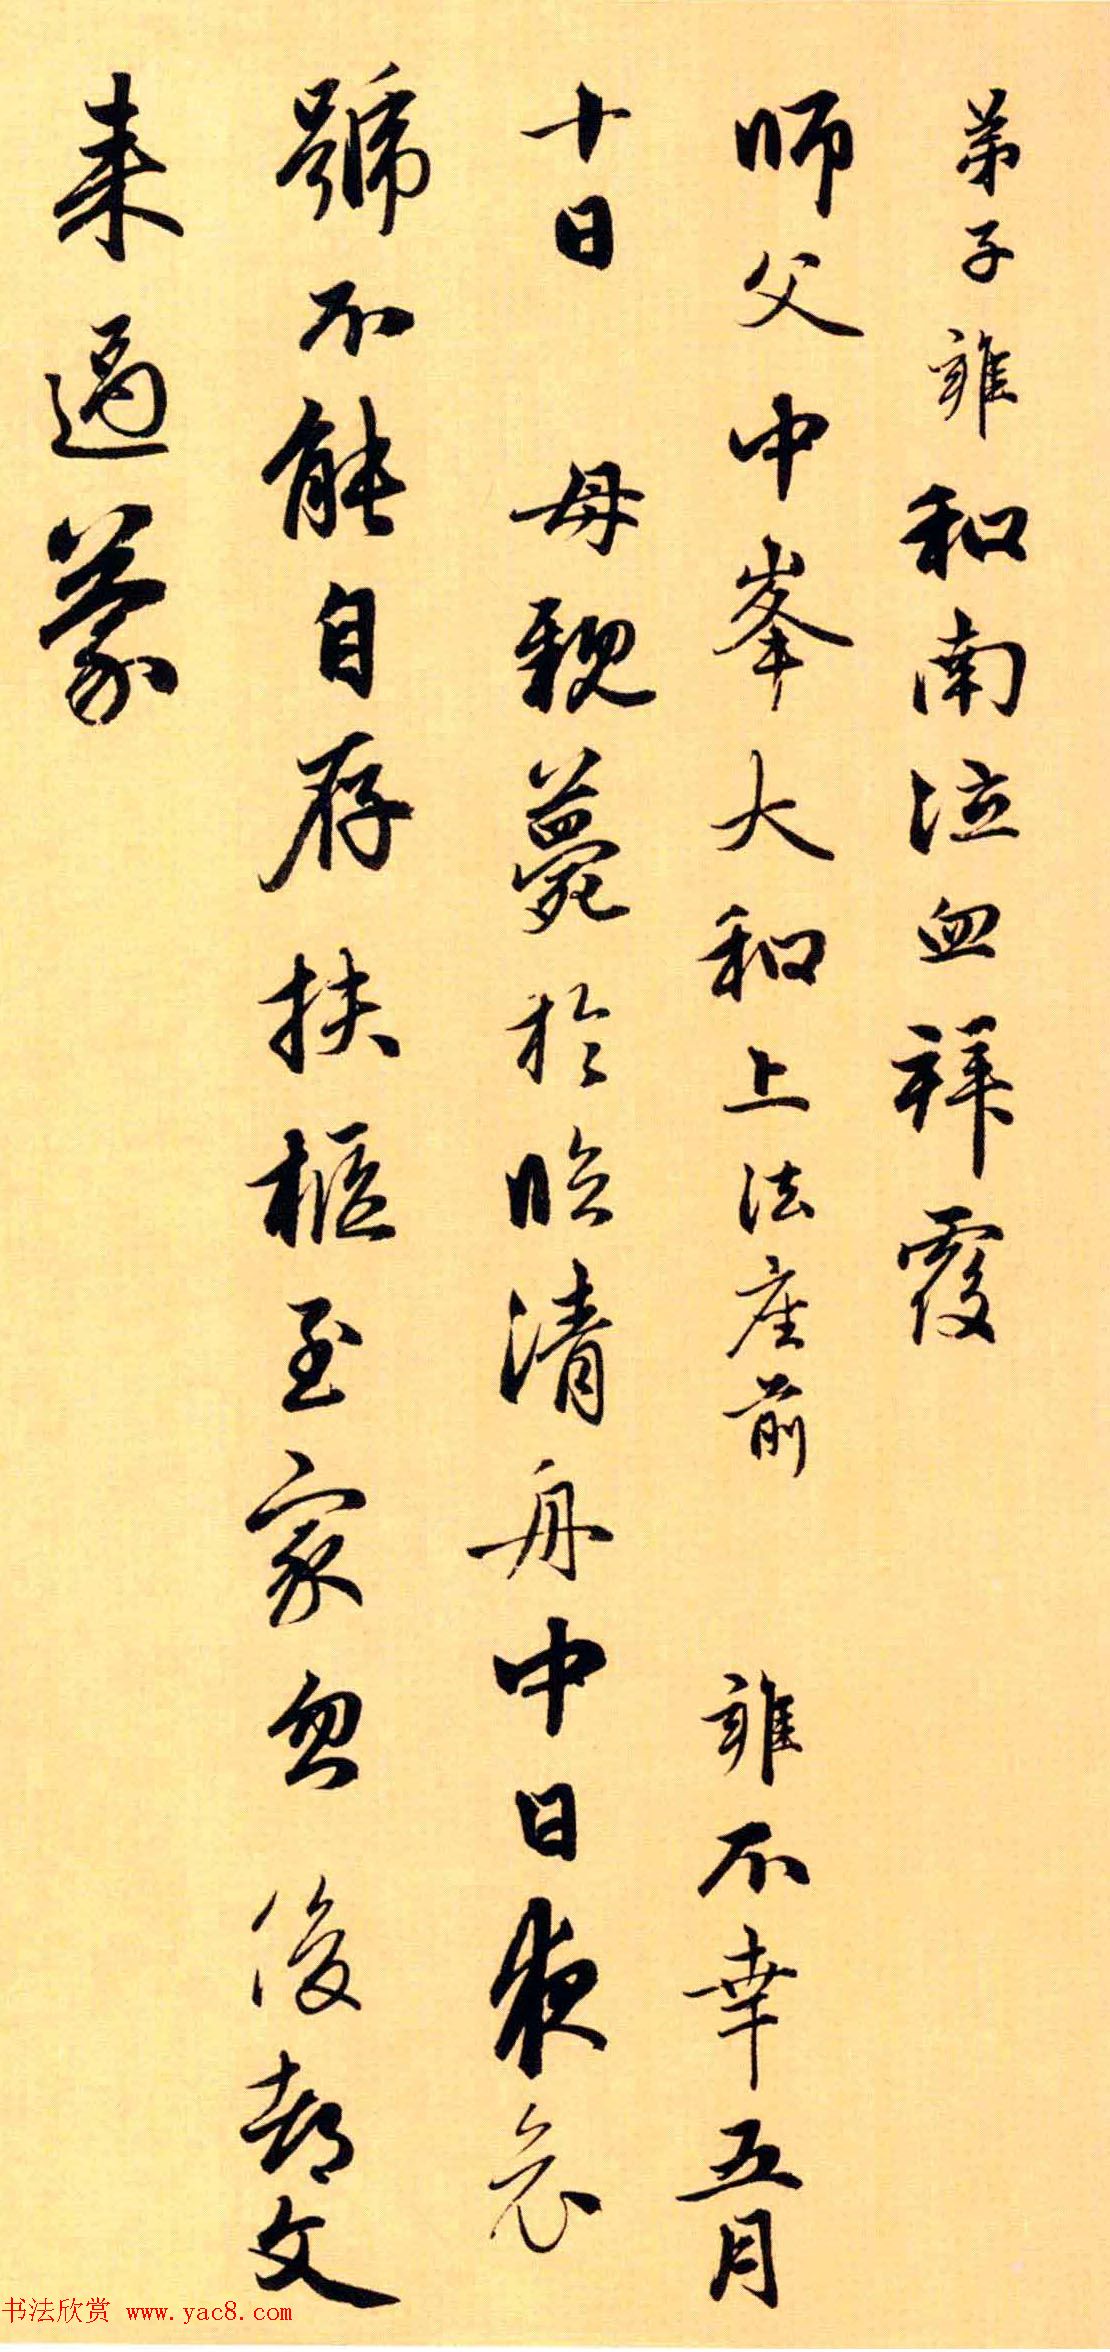 弟子雍和南泣血拜覆
師父中峯大和上法座前 雍不幸五月
十日 母親薨於臨清舟中日夜哀
號不能自存扶柩至家忽後都文
来過蒙
书法欣赏 www.yac8.com